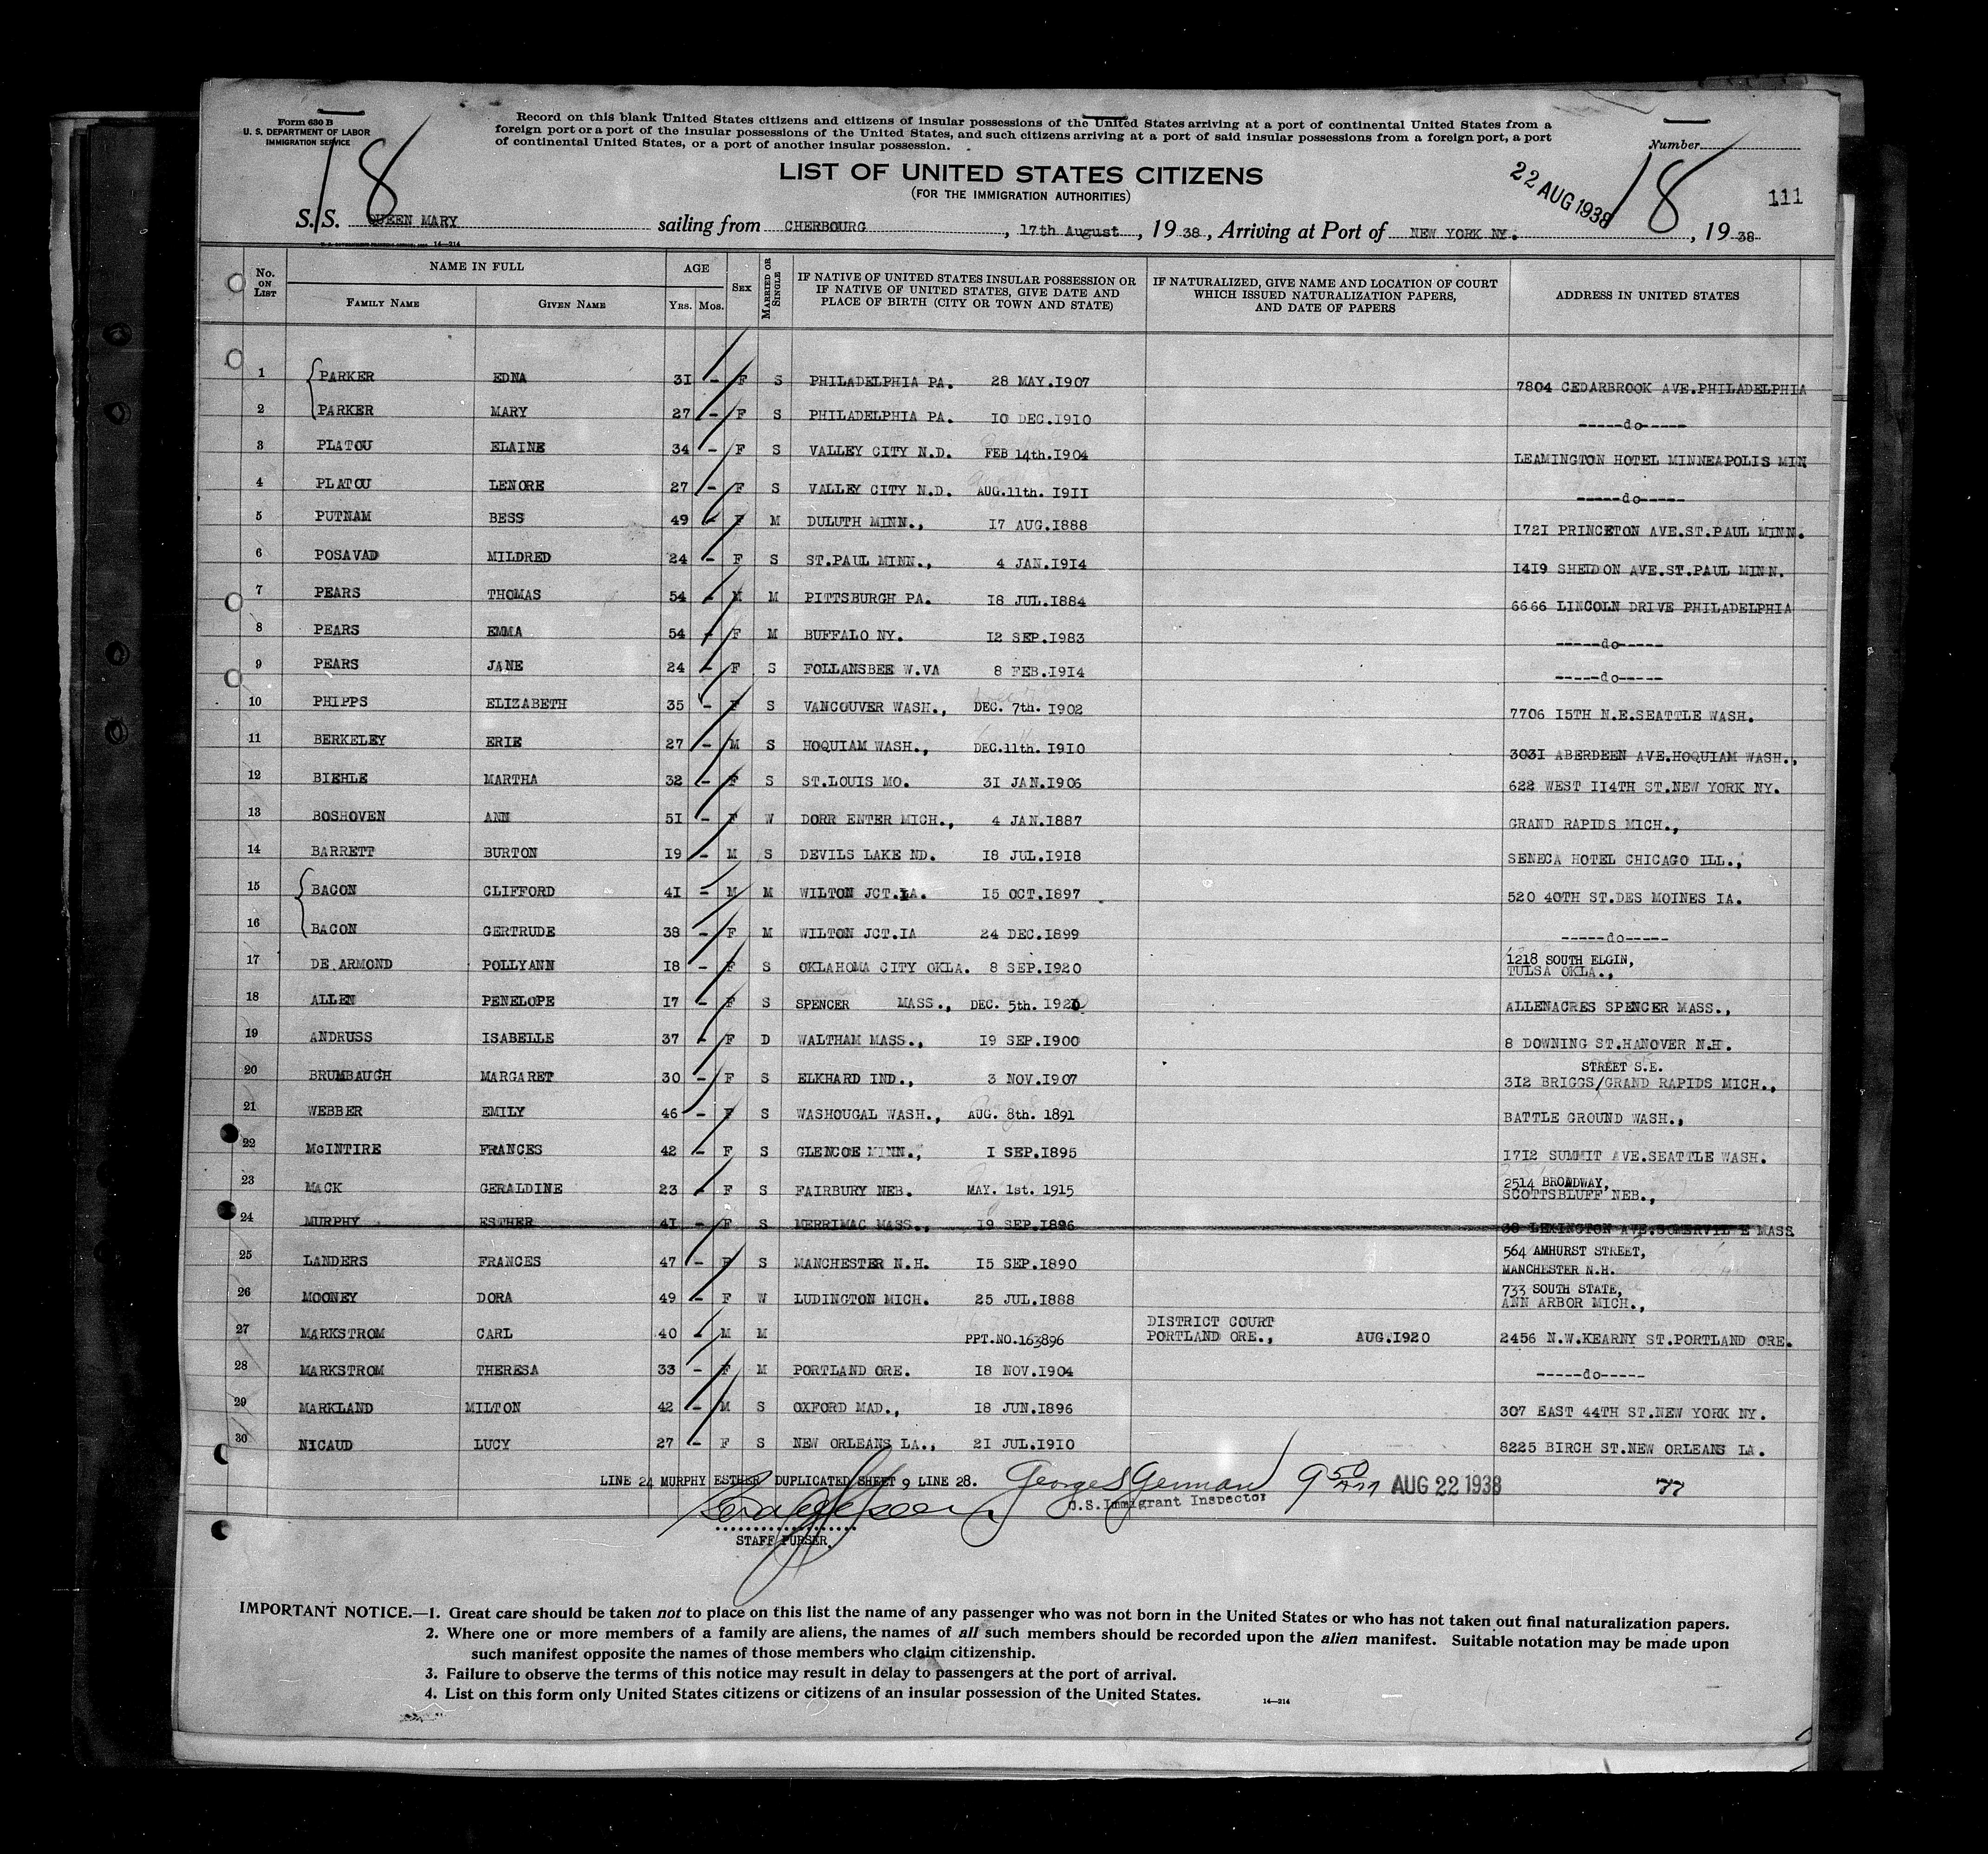 Form 630 B
U. S. DEPARTMENT OF LABOR
IMMIGRATION SERVICE
18
Record on this blank United States citizens and citizens of insular possessions of the United States arriving at a port of continental United States from a
foreign port or a port of the insular possessions of the United States, and such citizens arriving at a port of said insular possessions from a foreign port, a port
of continental United States, or a port of another insular possession.
Number
LIST OF UNITED STATES CITIZENS
(FOR THE IMMIGRATION AUTHORITIES)
22 AUG 1938
18
111
S. S. QUEEN MARY sailing from CHERBOURG, 17th August, 1938, Arriving at Port of NEW YORK NY., 1938
14—214
No. ON LIST NAME IN FULL FAMILY NAME GIVEN NAME AGE YRS. MOS. SEX MARRIED OR SINGLE IF NATIVE OF UNITED STATES INSULAR POSSESSION OR IF NATIVE OF UNITED STATES, GIVE DATE AND PLACE OF BIRTH (CITY OR TOWN AND STATE) IF NATURALIZED, GIVE NAME AND LOCATION OF COURT WHICH ISSUED NATURALIZATION PAPERS, AND DATE OF PAPERS ADDRESS IN UNITED STATES
1 PARKER EDNA 31 - F S PHILADELPHIA PA. 28 MAY.1907 7804 CEDARBROOK AVE.PHILADELPHIA
2 PARKER MARY 27 - F S PHILADELPHIA PA. 10 DEC.1910 -----do-----
3 PLATOU ELAINE 34 - F S VALLEY CITY N.D. FEB 14th.1904 LEAMINGTON HOTEL MINNEAPOLIS MIN
4 PLATOU LENORE 27 - F S VALLEY CITY N.D. AUG.11th. 1911 -----do-----
5 PUTNAM BESS 49 - F M DULUTH MINN., 17 AUG.1888 1721 PRINCETON AVE.ST.PAUL MINN.
6 POSAVAD MILDRED 24 - F S ST.PAUL MINN., 4 JAN.1914 1419 SHELDON AVE.ST.PAUL MINN.
7 PEARS THOMAS 54 - M M PITTSBURGH PA. 18 JUL.1884 6666 LINCOLN DRIVE PHILADELPHIA
8 PEARS EMMA 54 - F M BUFFALO NY. 12 SEP.1983 -----do-----
9 PEARS JANE 24 - F S FOLLANSBEE W.VA 8 FEB.1914 -----do-----
10 PHIPPS ELIZABETH 35 - F S VANCOUVER WASH., DEC. 7th. 1902 7706 15TH N.E.SEATTLE WASH.
11 BERKELEY ERIE 27 - M S HOQUIAM WASH., DEC.11th. 1910 3031 ABERDEEN AVE.HOQUIAM WASH.,
12 BIEHLE MARTHA 32 - F S ST.LOUIS MO. 31 JAN.1906 622 WEST 114TH ST.NEW YORK NY.
13 BOSHOVEN ANN 51 - F W DORR ENTER MICH., 4 JAN.1887 GRAND RAPIDS MICH.,
14 BARRETT BURTON 19 - M S DEVILS LAKE ND. 18 JUL.1918 SENECA HOTEL CHICAGO ILL.,
15 BACON CLIFFORD 41 - M M WILTON JCT.IA. 15 OCT.1897 520 40TH ST.DES MOINES IA.
16 BACON GERTRUDE 38 - F M WILTON JCT.IA 24 DEC.1899 -----do-----
17 DE ARMOND POLLYANN 18 - F S OKLAHOMA CITY OKLA. 8 SEP.1920 1218 SOUTH ELGIN,
TULSA OKLA.,
18 ALLEN PENELOPE 17 - F S SPENCER MASS., DEC. 5th. 1920 ALLENACRES SPENCER MASS.,
19 ANDRUSS ISABELLE 37 - F D WALTHAM MASS., 19 SEP.1900 8 DOWNING ST.HANOVER N.H.
STREET S.E.
20 BRUMBAUGH MARGARET 30 - F S ELKHARD IND., 3 NOV.1907 312 BRIGGS/GRAND RAPIDS MICH.,
21 WEBBER EMILY 46 - F S WASHOUGAL WASH., AUG. 8th. 1891 BATTLE GROUND WASH.,
22 McINTIRE FRANCES 42 - F S GLENCOE MINN., 1 SEP.1895 1712 SUMMIT AVE.SEATTLE WASH.
23 MACK GERALDINE 23 - F S FAIRBURY NEB. MAY. 1st. 1915 2514 BROADWAY,
SCOTTSBLUFF NEB.,
24 MURPHY ESTHER 41 - F S MERRIMAC MASS., 19 SEP.1896 38 LEXINGTON AVE.SOMERVILLE MASS
25 LANDERS FRANCES 47 - F S MANCHESTER N.H. 15 SEP.1890 564 AMHURST STREET,
MANCHESTER N.H.
26 MOONEY DORA 49 - F W LUDINGTON MICH. 25 JUL.1888 733 SOUTH STATE,
ANN ARBOR MICH.,
27 MARKSTROM CARL 40 - M M PPT.NO.163896 DISTRICT COURT
PORTLAND ORE., AUG.1920 2456 N.W.KEARNY ST.PORTLAND ORE.
28 MARKSTROM THERESA 33 - F M PORTLAND ORE. 18 NOV.1904 -----do-----
29 MARKLAND MILTON 42 - M S OXFORD MAD., 18 JUN.1896 307 EAST 44TH ST.NEW YORK NY.
30 NICAUD LUCY 27 - F S NEW ORLEANS LA., 21 JUL.1910 8225 BIRCH ST.NEW ORLEANS LA.
LINE 24 MURPHY ESTHER DUPLICATED SHEET 9 LINE 28. George S German 9 50 AM AUG 22 1938
U.S. Immigrant Inspector
STAFF PURSER.
IMPORTANT NOTICE.—1. Great care should be taken not to place on this list the name of any passenger who was not born in the United States or who has not taken out final naturalization papers.
2. Where one or more members of a family are aliens, the names of all such members should be recorded upon the alien manifest. Suitable notation may be made upon
such manifest opposite the names of those members who claim citizenship.
3. Failure to observe the terms of this notice may result in delay to passengers at the port of arrival.
4. List on this form only United States citizens or citizens of an insular possession of the United States.
14—214